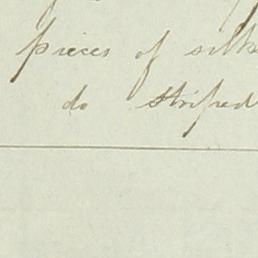 pieces of silk
do striped